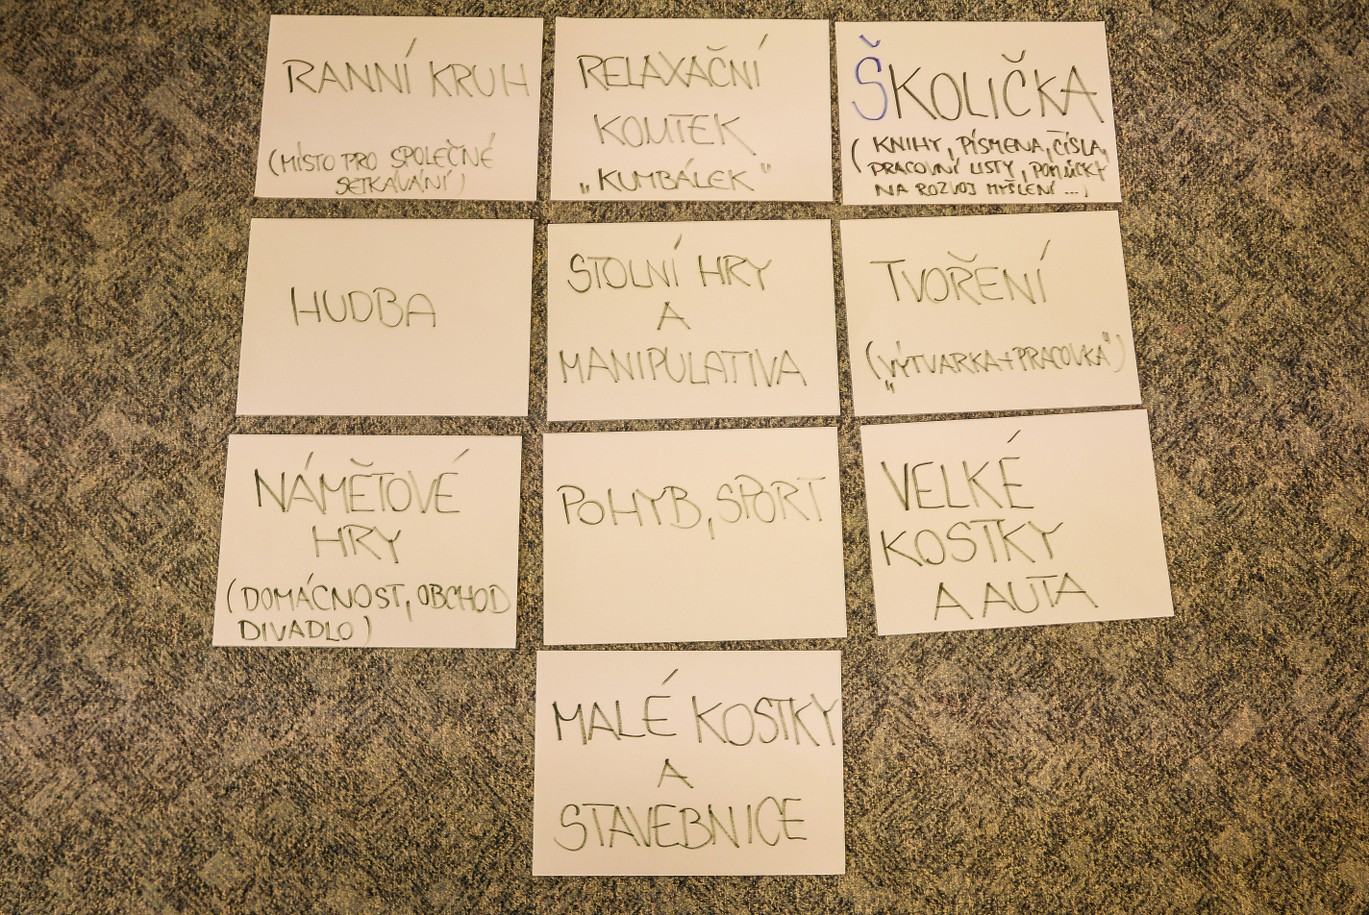 RANNÍ KRUH
(MÍSTO PRO SPOLEČNÉ
SETKÁVÁNÍ)
RELAXAČNÍ
KOUTEK
„KUMBÁLEK"
ŠKOLIČKA
(KNIHY, PÍSMENA, ČÍSLA,
PRACOVNÍ LISTY, POMŮCKY
NA ROZVOJ MYŠLENÍ ...)
HUDBA
STOLNÍ HRY
A
MANIPULATIVA
TVOŘENÍ
(„VÝTVARKA+PRACOVKA")
NÁMĚTOVÉ
HRY
(DOMÁCNOST, OBCHOD
DIVADLO)
POHYB, SPORT
VELKÉ
KOSTKY
A AUTA
MALÉ KOSTKY
A
STAVEBNICE